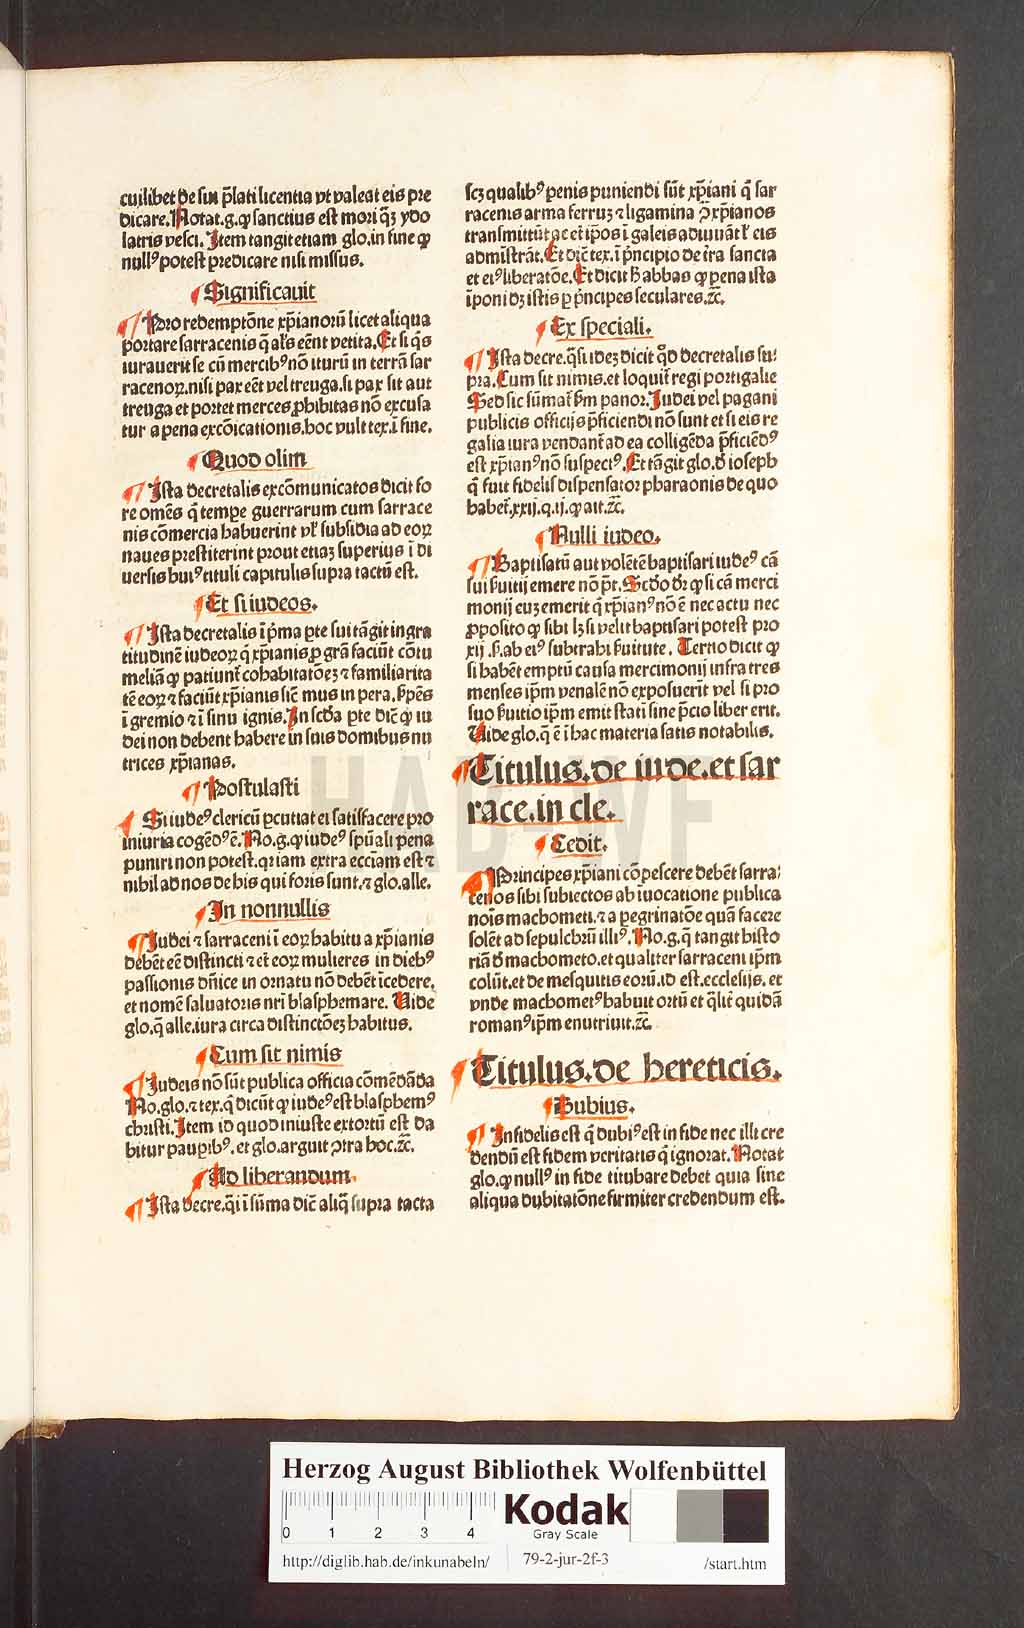 cuilibet de sui p̄lati licentia vt valeat eis pre
dicare. Notat .g. ꝙ sanctius est mori qȝ ydo
latris vesci. Item tangit etiam glo. in fine ꝙ
null⁹ potest predicare nisi missus.
Significauit
Pro redemptōne xp̄ianorū licet aliqua
portare sarracenis q̄ al̓s eēnt vetita. Et si q̓s
iurauerit se cū mercib⁹ nō iturū in terrā sar
racenoꝝ. nisi pax eēt vel treuga. si pax sit aut
treuga et portet merces ꝓhibitas nō excusa
tur a pena excōicationis. hoc vult tex. ī fine.
Quod olim
Ista decretalis excōmunicatos dicit fo
re omēs q̄ tempe guerrarum cum sarrace
nis cōmercia habuerint vl̓ subsidia ad eoꝝ
naues prestiterint prout etiaȝ superius ī di
uersis hui⁹ tituli capitulis supra tactū est.
Et si iudeos.
Ista decretalis ī p̓ma ꝑte sui tāgit ingra
titudinē iudeoꝝ q̄ xp̄ianis ꝓ grā faciūt cōtu
meliā ꝙ patiunt̄ cohabitatōeȝ ⁊ familiarita
tē eoꝝ ⁊ faciūt xp̄ianis sic̄ mus in pera. ẜpēs
ī gremio ⁊ ī sinu ignis. In scd̓a ꝑte dic̄ ꝙ iu
dei non debent habere in suis domibus nu
trices xp̄ianas.
Postulasti
Si iude⁹ clericū ꝑcutiat ei satisfacere pro
iniuria cogēd⁹ ē. No .g. ꝙ iude⁹ sp̄uali pena
puniri non potest. qꝛ iam extra ecc̄iam est ⁊
nihil ad nos de his qui foris sunt. ⁊ glo. alle.
In nonnullis
Iudei ⁊ sarraceni ī eoꝝ habitu a xp̄ianis
debēt eē distincti ⁊ et̄ eoꝝ mulieres in dieb⁹
passionis dn̄ice in ornatu nō debēt īcedere.
et nomē saluatoris nr̄i blasphemare. Uide
glo. q̄ alle. iura circa distinctōeȝ habitus.
Cum sit nimis
Iudeis nō sūt publica officia cōmēdāda
No. glo. ⁊ tex. q̄ dicūt ꝙ iude⁹ est blasphem⁹
christi. Item id quod iniuste extortū est da
bitur pauꝑib⁹. et glo. arguit ꝯtra hoc. ⁊c̄.
Ad liberandum.
Ista decre. q̄i ī sūma dic̄ aliq̄ supra tacta
scȝ qualib⁹ penis puniendi sūt xp̄iani q̄ sar
racenis arma ferruȝ ⁊ ligamina ꝯ̄ xp̄ianos
transmittūt ac et̄ ip̄os ī galeis adiuuāt l̓ eis
admīstrāt. Et dic̄ tex. ī p̓ncipio de t̓ra sancta
et ei⁹ liberatōe. Et dicit h̄ abbas ꝙ pena ista
īponi dȝ istis ꝑ p̓ncipes seculares. ⁊c̄.
Ex speciali.
Ista decre. q̄si ideȝ dicit q̄d decretalis su⸗
pra. Cum sit nimis. et loquit̄ regi portigalie
Sed sic sūmat̄ ẜm panor. Iudei vel pagani
publicis officijs p̄ficiendi nō sunt et si eis re
galia iura vendant̄ ad ea colligēda p̄ficiēd⁹
est xp̄ian⁹ nō suspect⁹. Et tāgit glo. d̓ ioseph
q̄ fuit fidelis dispensator pharaonis de quo
habet̄. xxij. q. ij. ꝙ ait. ⁊c̄.
Nulli iudeo.
Baptisatū aut volētē baptisari iude⁹ cā
sui ẜuitij emere nō pōt. Scd̓o dr̄ ꝙ si cā merci
monij euȝ emerit q̄ xp̄ian⁹ nō ē nec actu nec
ꝓposito ꝙ sibi lȝ si velit baptisari potest pro
xij .ẜ. ab ei⁹ subtrahi ẜuitute. Tertio dicit ꝙ
si habēt emptū causa mercimonij infra tres
menses ip̄m venalē nō exposuerit vel si pro
suo ẜuitio ip̄m emit stati sine p̄cio liber erit.
Uide glo. q̄ ē ī hac materia satis notabilis.
Titulus. de iude. et sar
race. in cle.
Cedit.
Principes xp̄iani cōpescere debēt sarra⸗
cenos sibi subiectos ab īuocatione publica
nois̄ machometi. ⁊ a pegrinatōe quā facere
solēt ad sepulchrū illi⁹. No .g. q̄ tangit histo
riā d̓ machometo. et qualiter sarraceni ip̄m
colūt. et de mesquitis eorū. id est. ecclesijs. et
vnde machomet⁹ habuit ortū et q̄lit̄ quidā
roman⁹ ip̄m enutriuit. ⁊c̄.
Titulus. de hereticis.
Dubius.
Infidelis est q̄ dubi⁹ est in fide nec illi cre
dendū est fidem veritatis q̄ ignorat. Notat
glo. ꝙ null⁹ in fide titubare debet quia sine
aliqua dubitatōne firmiter credendum est.
HAB-WF
Herzog August Bibliothek Wolfenbüttel
0 1 2 3 4
Kodak
Gray Scale
http://diglib.hab.de/inkunabeln/ 79-2-jur-2f-3 /start.htm